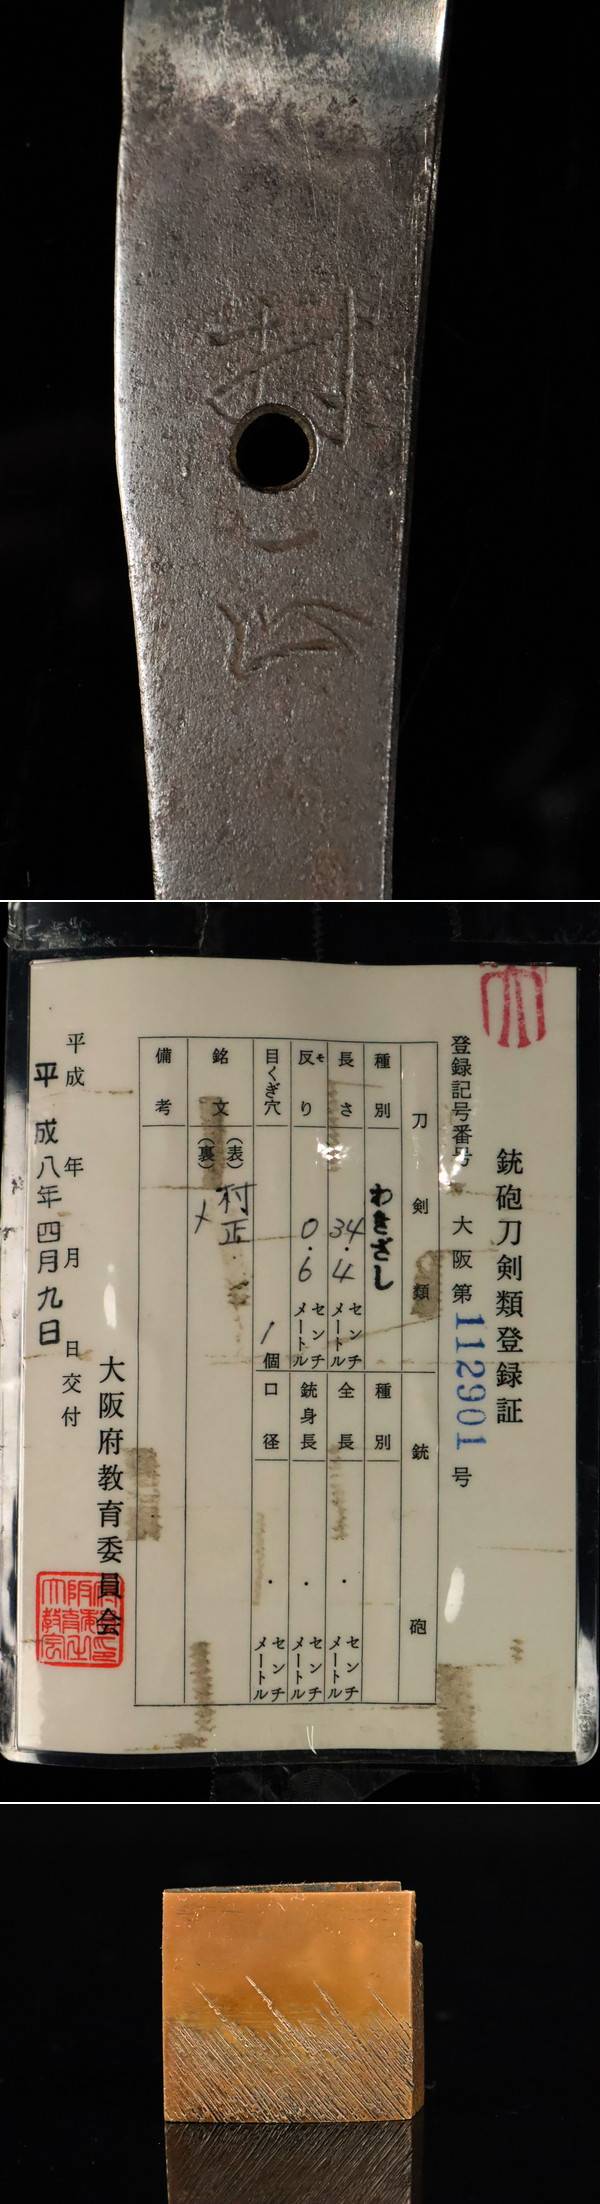 村正
銃砲刀剣類登録証
登録記号番号 大阪第112901号
刀剣類
種別 わきざし
長さ 34.4 センチメートル
反り 0.6 センチメートル
目くぎ穴 1個
銘文 (表) 村正
(裏)
備考
銃砲
種別
全長 ・ センチメートル
銃身長 ・ センチメートル
口径 ・ センチメートル
平成 年 月 日交付
平成八年四月九日
大阪府教育委員会